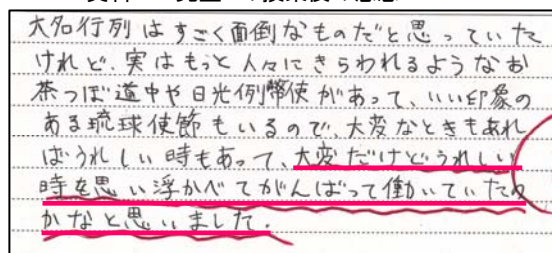 大名行列はすごく面倒なものだと思っていた
けれど、実はもっと人々にきらわれるようなお
茶つぼ道中や日光例幣使があって、いい印象の
ある琉球使節もいるので、大変なときもあれ
ばうれしい時もあって、大変だけどうれしい
時を思い浮かべてがんばって働いていたの
かなと思いました。